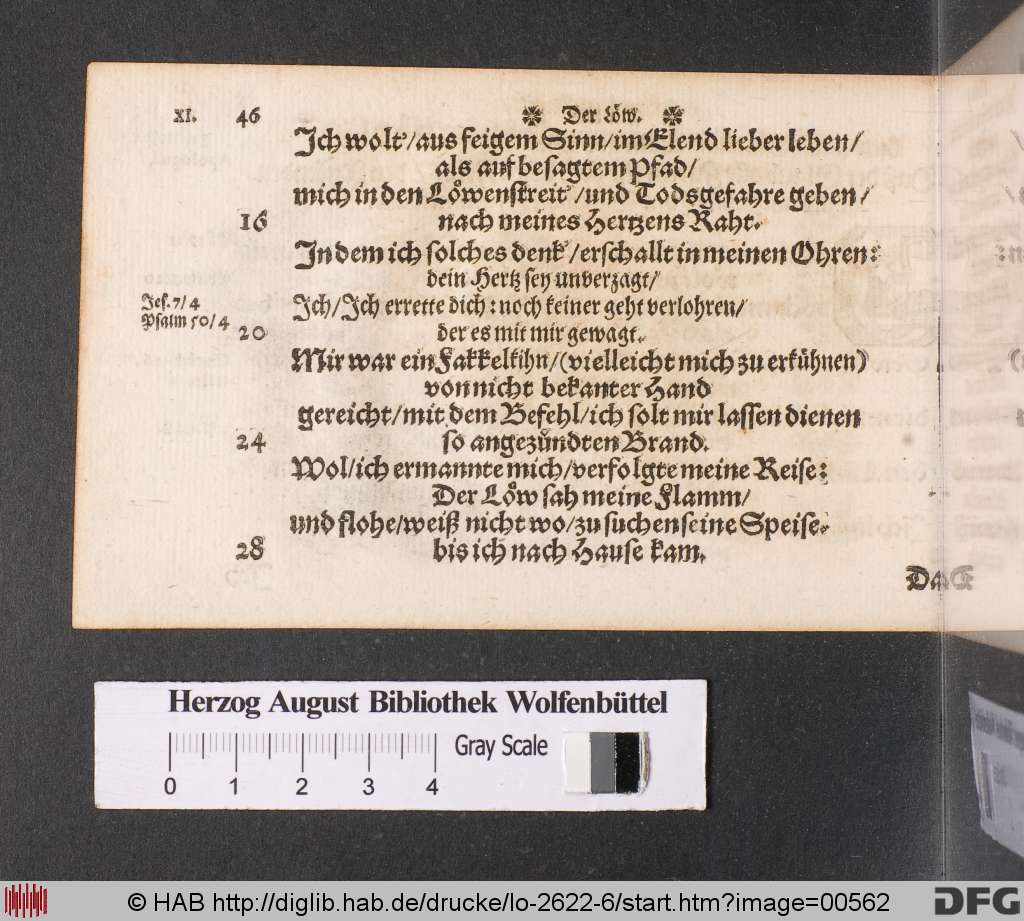 XI. 46 Der Löw.
Ich wolt'/aus feigem Sinn/im Elend lieber leben/
als auf besagtem Pfad/
mich in den Löwenstreit'/und Todsgefahre geben/
16 nach meines Hertzens Raht.
In dem ich solches denk'/erschallt in meinen Ohren:
dein Hertz sey unverzagt/
Jes. 7/4 Ich/Ich errette dich: noch keiner geht verlohren/
Psalm 50/4 20 der es mit mir gewagt.
Mir war ein Fakkelkihn/(vielleicht mich zu erkühnen)
von nicht bekanter Hand
gereicht/mit dem Befehl/ich solt mir lassen dienen
24 so angezündten Brand.
Wol/ich ermannte mich/verfolgte meine Reise:
Der Löw sah meine Flamm/
und flohe/weiß nicht wo/zu suchen seine Speise.
28 bis ich nach Hause kam.
Herzog August Bibliothek Wolfenbüttel
Gray Scale
0 1 2 3 4
© HAB http://diglib.hab.de/drucke/lo-2622-6/start.htm?image=00562
DFG